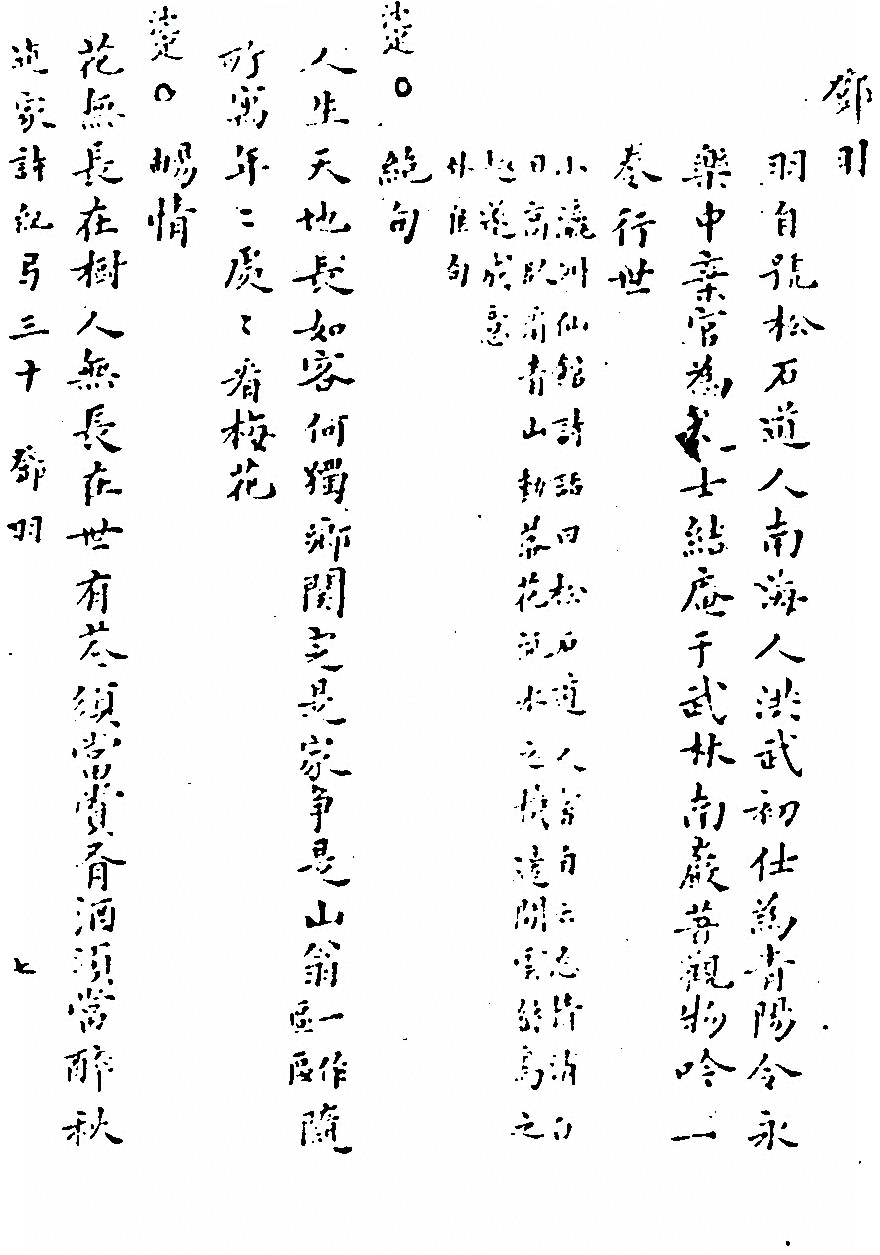 鄧羽
羽自號松石道人南海人洪武初仕為青陽令永
樂中棄官為道士結庵于武林南巖著觀物吟一
卷行世
小瀛洲仙館詩話曰松石道人嘗自云
日高臥看青山對落花流水之
趣遂成
外佳句
楚○絕句
人生天地長如客何獨鄉關定是家爭是山翁一作區區隨
所寓年〻處〻看梅花
楚○暢情
花無長在樹人無長在世有花須當賞有酒須當醉秋
道家詩紀弓三十 鄧羽 七